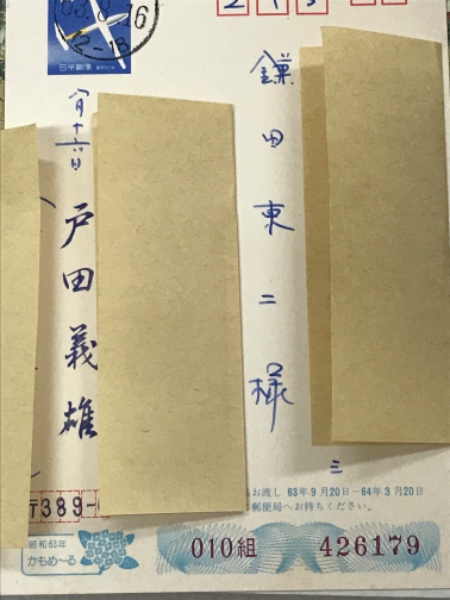 63.8.16
12-18
日本郵便
213
鎌田東二様
三
八月十六日
戸田義雄
389-
お渡し 63年9月20日-64年3月20日
郵便局へお持ちください。
昭和63年
かもめ~る
010組 426179